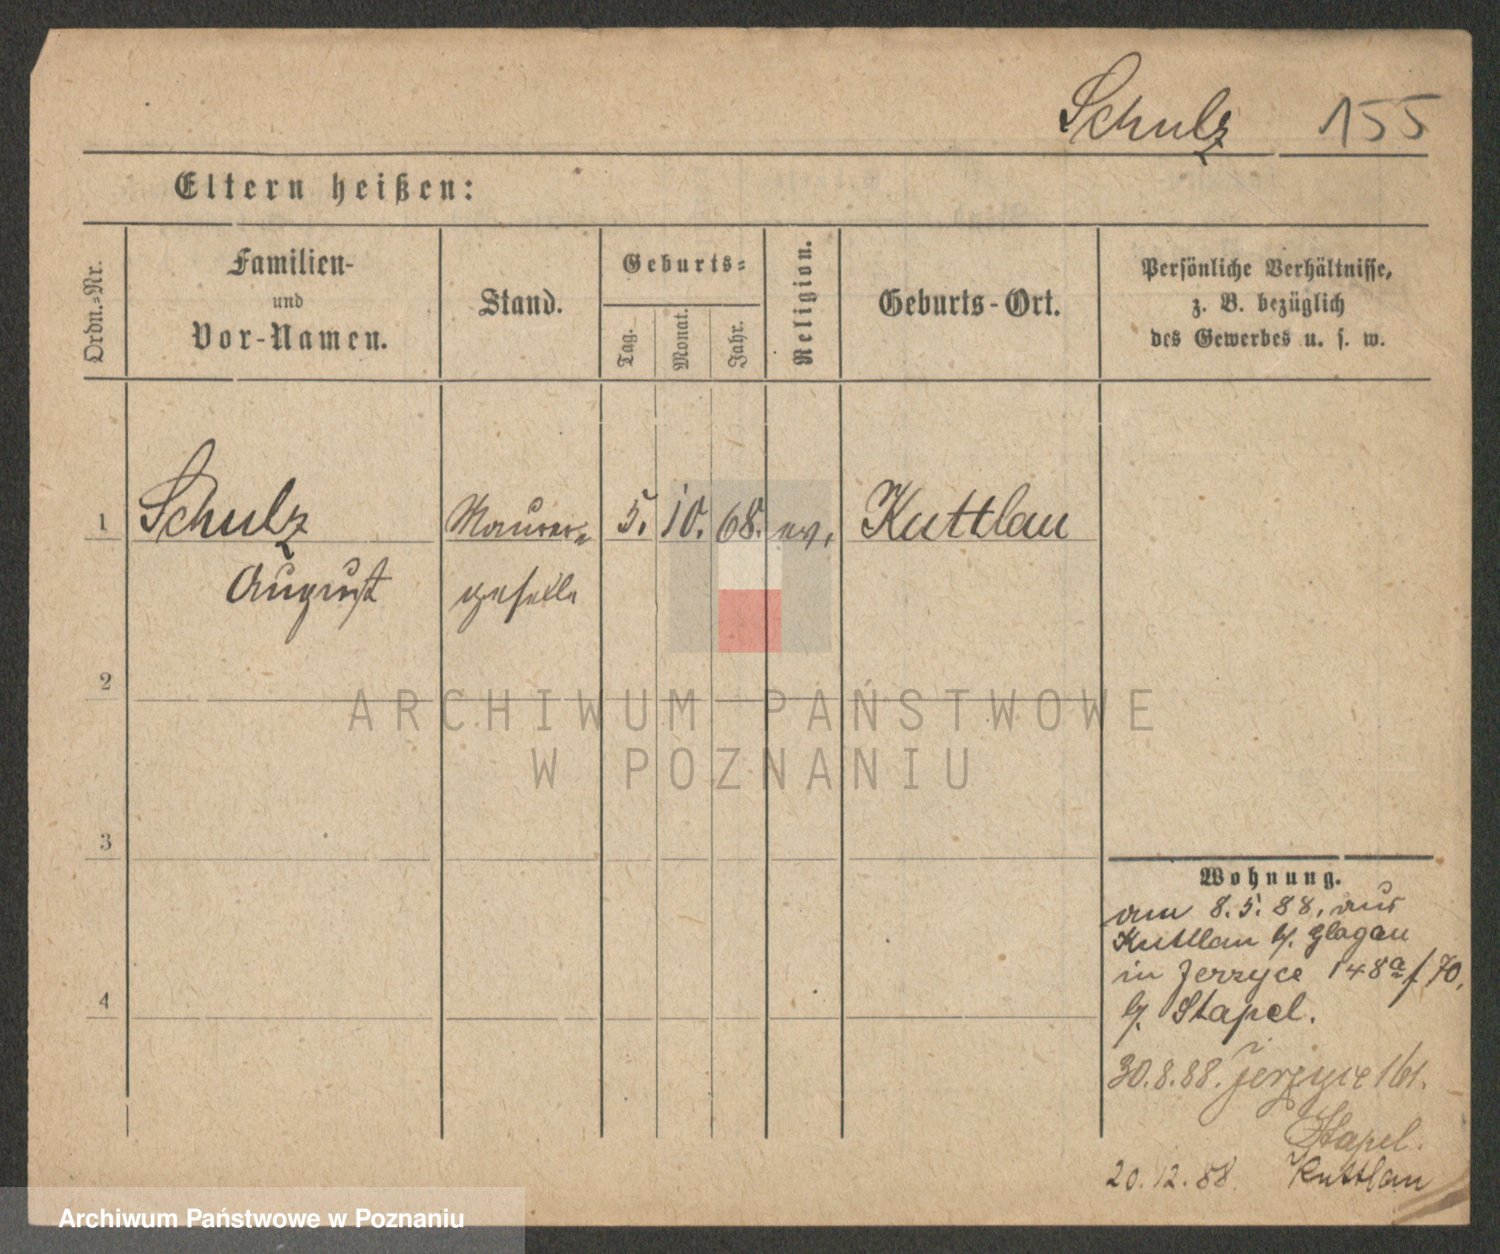 Schulz 155
Eltern heißen:
Ordn.=Nr.
Familien-
und
Vor-Namen.
Stand.
Geburts=
Tag.
Monat.
Jahr.
Religion.
Geburts-Ort.
Persönliche Verhältnisse,
z. B. bezüglich
des Gewerbes u. s. w.
1 Schulz Maurer= 5. 10. 68. ev. Kuttlau
August geselle
2
3
4
Wohnung.
am 8.5.88, aus
Kuttlau b/. Glogau
in Jerzyce 148a/70,
b/. Stapel.
30.8.88. Jerzyce 161.
Stapel.
20.12.88. Kuttlau
ARCHIWUM PAŃSTWOWE
W POZNANIU
Archiwum Państwowe w Poznaniu